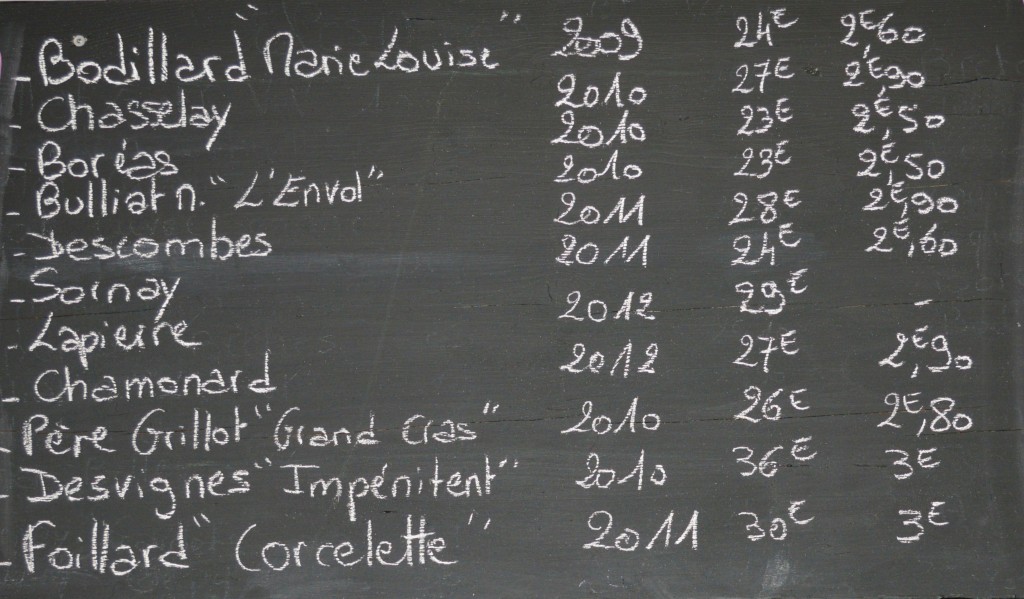 - Bodillard "Marie Louise" 2009 24€ 2€,60
- Chasselay 2010 27€ 2€,90
- Boréas 2010 23€ 2€,50
- Bulliat n. "L'Envol" 2010 23€ 2€,50
- Descombes 2011 28€ 2€,90
- Sornay 2011 24€ 2€,60
- Lapierre 2012 29€ -
- Chamonard 2012 27€ 2€,90
- Père Grillot "Grand Cras" 2010 26€ 2€,80
- Desvignes "Impénitent" 2010 36€ 3€
- Foillard "Corcelette" 2011 30€ 3€